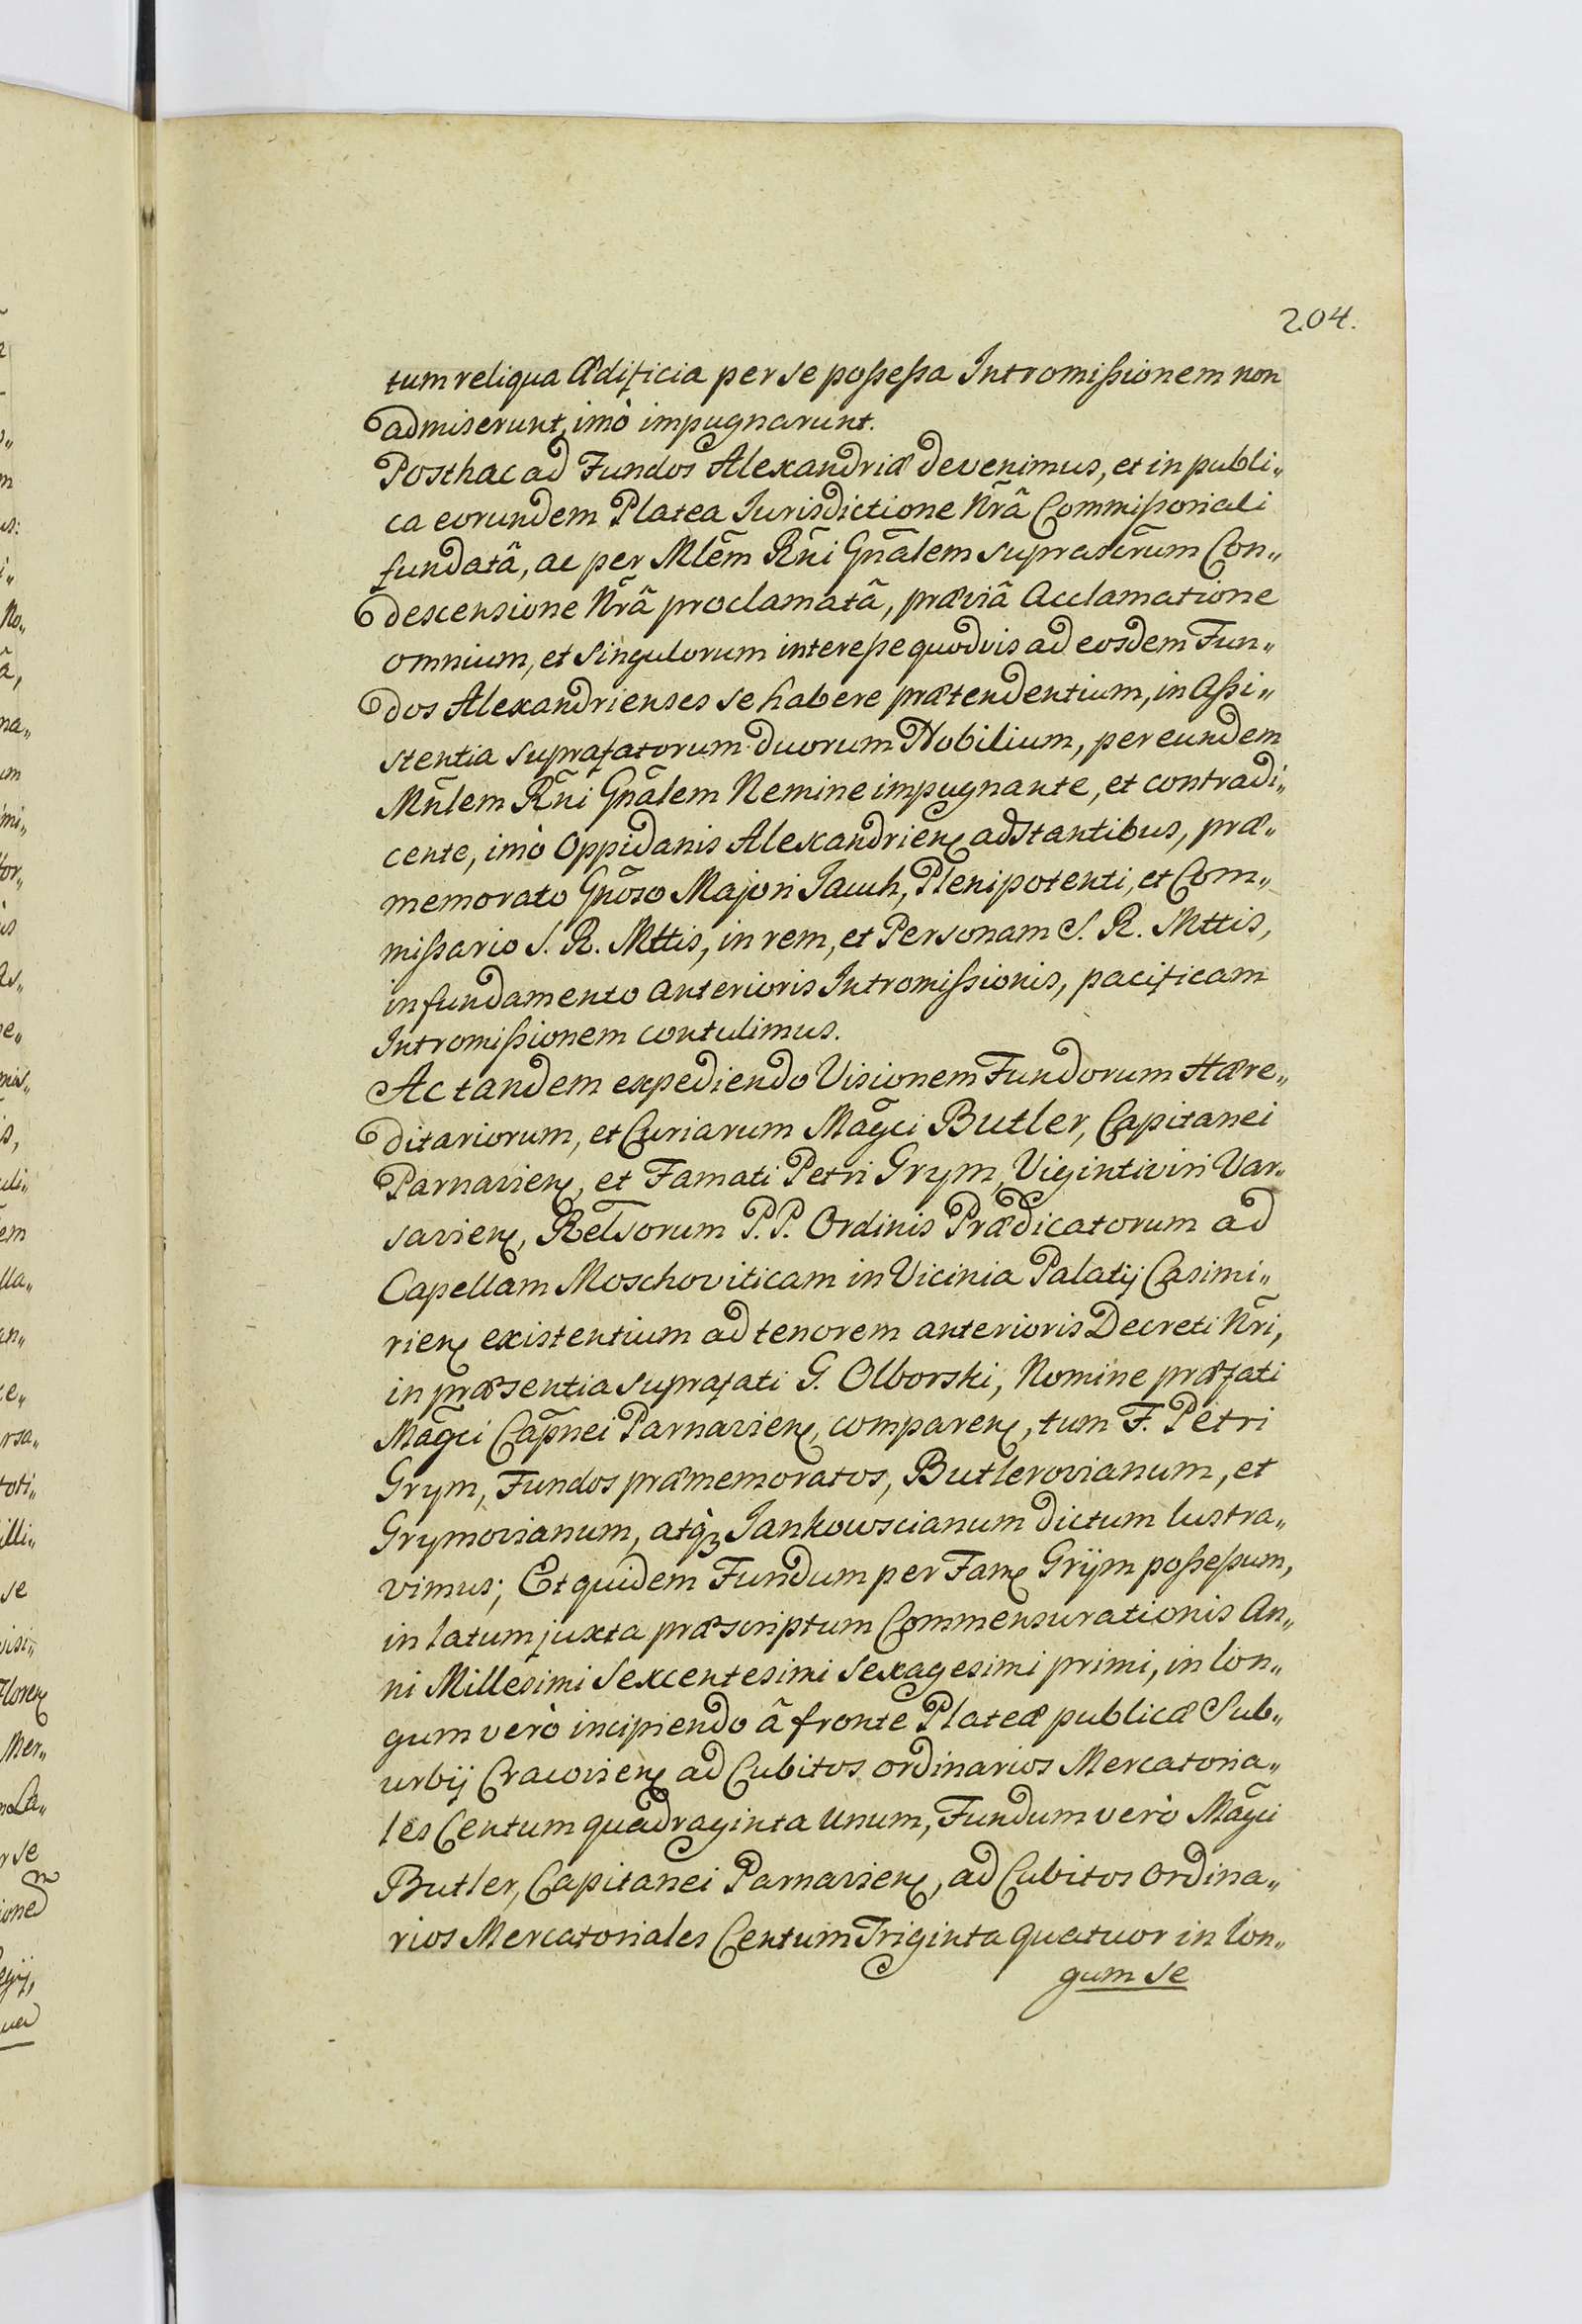 204.
tum reliqua Ædificia per se possessa Intromissionem non
admiserunt, imò impugnarunt.
Posthac ad Fundos Alexandriæ devenimus, et in publi„
ca eorundem Platea Iurisdictione Nr̃â Commissoriali
fundatâ, ac per Mlẽm Rñi Gñalem supratc̃rum Con„
descensione Nr̃â proclamatâ, præviâ Acclamatione
omnium, et singulorum interesse quodvis ad eosdem Fun„
dos Alexandrienses se habere prætendentium, in Assi„
stentia suprafatorum duorum Nobilium, per eundem
Mñlem Rñi Gñalem Nemine impugnante, et contradi„
cente, imò Oppidanis Alexandrień adstantibus, præ„
memorato Gñoso Majori Jauch, Plenipotenti, et Com„
missario S. R. Mttis, in rem, et Personam S. R. Mttis,
in fundamento anterioris Intromissionis, pacificam
Intromissionem contulimus.
Ac tandem expediendo Visionem Fundorum Hære„
ditariorum, et Curiarum Mãgci Butler, Capitanei
Parnavień, et Famati Petri Grym, Vigintiviri Var„
savień, Rel̃sorum P.P. Ordinis Prædicatorum ad
Capellam Moschoviticam in Vicinia Palatij Casimi„
rień existentium ad tenorem anterioris Decreti Nr̃i,
in præsentia suprafati G. Olborski, Nomine præfati
Mãgci Cap̃nei Parnavień, compareń, tum F. Petri
Grym, Fundos præmemoratos, Butlerovianum, et
Grymovianum, atq̃ꝫ Jankowscianum dictum lustra„
vimus; Et quidem Fundum per Fam̃ Grÿm possessum,
in latum juxta præscriptum Commensurationis An„
ni Millesimi Sexcentesimi Sexagesimi primi, in lon„
gum verò incipiendo â fronte Plateæ publicæ Sub„
urbij Cracovień ad Cubitos ordinarios Mercatoria„
les Centum quadraginta Unum, Fundum verò Mãgci
Butler, Capitanei Parnavień, ad Cubitos Ordina„
rios Mercatoriales Centum Triginta quatuor in lon„
gum se